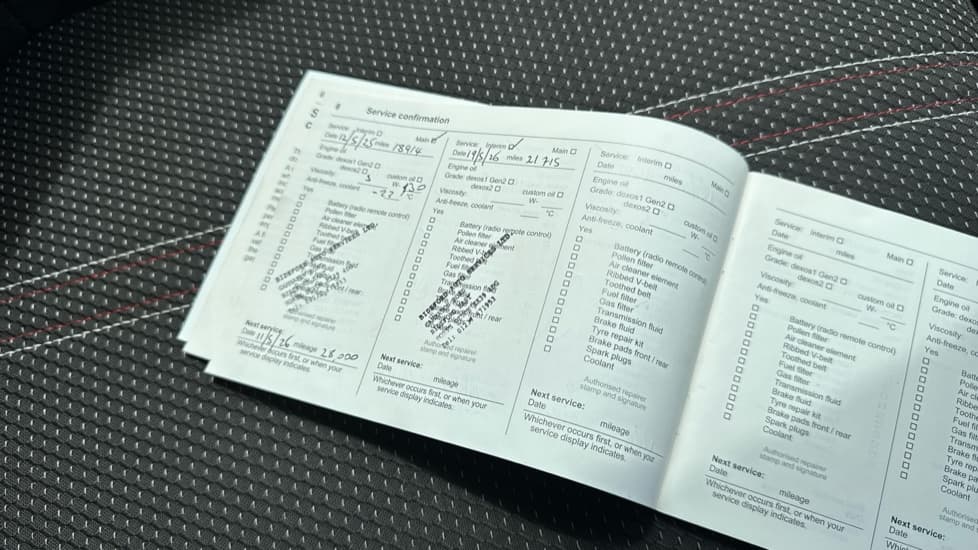 Service confirmation
Service: Interim ☐ Main ☑
Date 12/5/25 miles 18914
Engine oil
Grade: dexos1 Gen2 ☐
dexos2 ☐ custom oil ☐
Viscosity: W-30
Anti-freeze, coolant -22 °C
Yes
☐ Battery (radio remote control)
☐ Pollen filter
☐ Air cleaner element
☐ Ribbed V-belt
☐ Toothed belt
☐ Fuel filter
Authorised repairer
stamp and signature
Next service:
Date 11/5/26 mileage 28,000
Whichever occurs first, or when your
service display indicates.
Service: Interim ☑ Main ☐
Date 19/5/26 miles 21715
Engine oil
Grade: dexos1 Gen2 ☐
dexos2 ☐ custom oil ☐
Viscosity: W-
Anti-freeze, coolant °C
Yes
☐ Battery (radio remote control)
☐ Pollen filter
☐ Air cleaner element
☐ Ribbed V-belt
☐ Toothed
☐ Fuel
☐ Gas
/ rear
Authorised repairer
stamp and signature
Next service:
Date mileage
Whichever occurs first, or when your
service display indicates.
Service: Interim ☐ Main ☐
Date miles
Engine oil
Grade: dexos1 Gen2 ☐
dexos2 ☐ custom oil ☐
Viscosity: W-
Anti-freeze, coolant °C
Yes
☐ Battery (radio remote control)
☐ Pollen filter
☐ Air cleaner element
☐ Ribbed V-belt
☐ Toothed belt
☐ Fuel filter
☐ Gas filter
☐ Transmission fluid
☐ Brake fluid
☐ Tyre repair kit
☐ Brake pads front / rear
☐ Spark plugs
☐ Coolant
Authorised repairer
stamp and signature
Next service:
Date mileage
Whichever occurs first, or when your
service display indicates.
Service: Interim ☐ Main ☐
Date miles
Engine oil
Grade: dexos1 Gen2 ☐
dexos2 ☐ custom oil ☐
Viscosity: W-
Anti-freeze, coolant °C
Yes
☐ Battery (radio remote control)
☐ Pollen filter
☐ Air cleaner element
☐ Ribbed V-belt
☐ Toothed belt
☐ Fuel filter
☐ Gas filter
☐ Transmission fluid
☐ Brake fluid
☐ Tyre repair kit
☐ Brake pads front / rear
☐ Spark plugs
☐ Coolant
Authorised repairer
stamp and signature
Next service:
Date mileage
Whichever occurs first, or when your
service display indicates.
Service
Date
Engine oil
Grade: dexos
Viscosity:
Anti-freeze
Yes
☐ Batt
☐ Pollen
☐ Air cl
☐ Ribbe
☐ Tooth
☐ Fuel fil
☐ Gas filt
☐ Transm
☐ Brake fl
☐ Tyre rep
☐ Brake pa
☐ Spark plu
☐ Coolant
Authorised
stamp and
Next service:
Date
Which